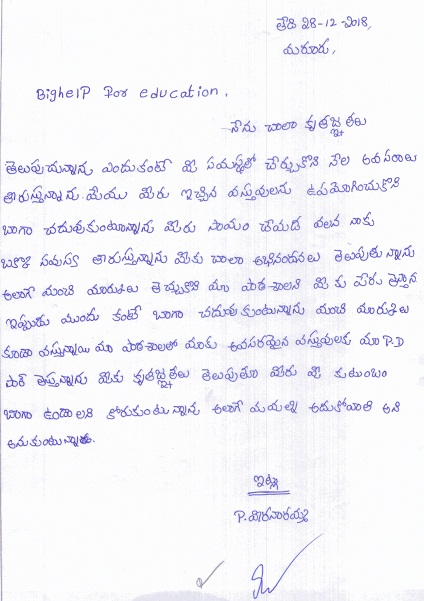 తేది 28-12-2018,
యరూరు,
BigheIP For education.
నేను చాలా కృతజ్ఞతలు
తెలుపుచున్నాను ఎందుకంటే మీ సంస్థలో చేర్చుకొని నెల అవసరాలు
తీరుస్తున్నారు. మేము మీరు ఇచ్చిన వస్తువులను ఉపయోగించుకొని
బాగా చదువుకుంటూన్నాను మీరు సాయం చేయడం వలన నాకు
సమస్య తీరుస్తున్నారు మీకు చాలా అభినందనలు తెలుపుతున్నాను
అలాగే మంచి మారుకులు తెచ్చుకొని మా పాఠశాలకి మీకు పేరు తెస్తాను
ఇప్పుడు ముందు కంటే బాగా చదువుకుంటున్నాను మంచి మారుకులు
కూడా వస్తున్నాయి మా పాఠశాలలో మాకు అవసరమైన వస్తువులకు మా P.D
సార్ తెస్తున్నారు మీకు కృతజ్ఞతలు తెలుపుతూ మీరు మీ కుటుంబం
బాగా ఉండాలని కోరుకుంటున్నాను అలాగే మమల్ని ఆదుకోవాలి అని
అనుకుంటున్నాను.
ఇట్లు